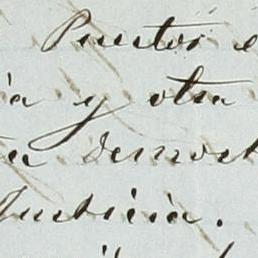 Puestos e
ia y otra
ta demost
Justicia.